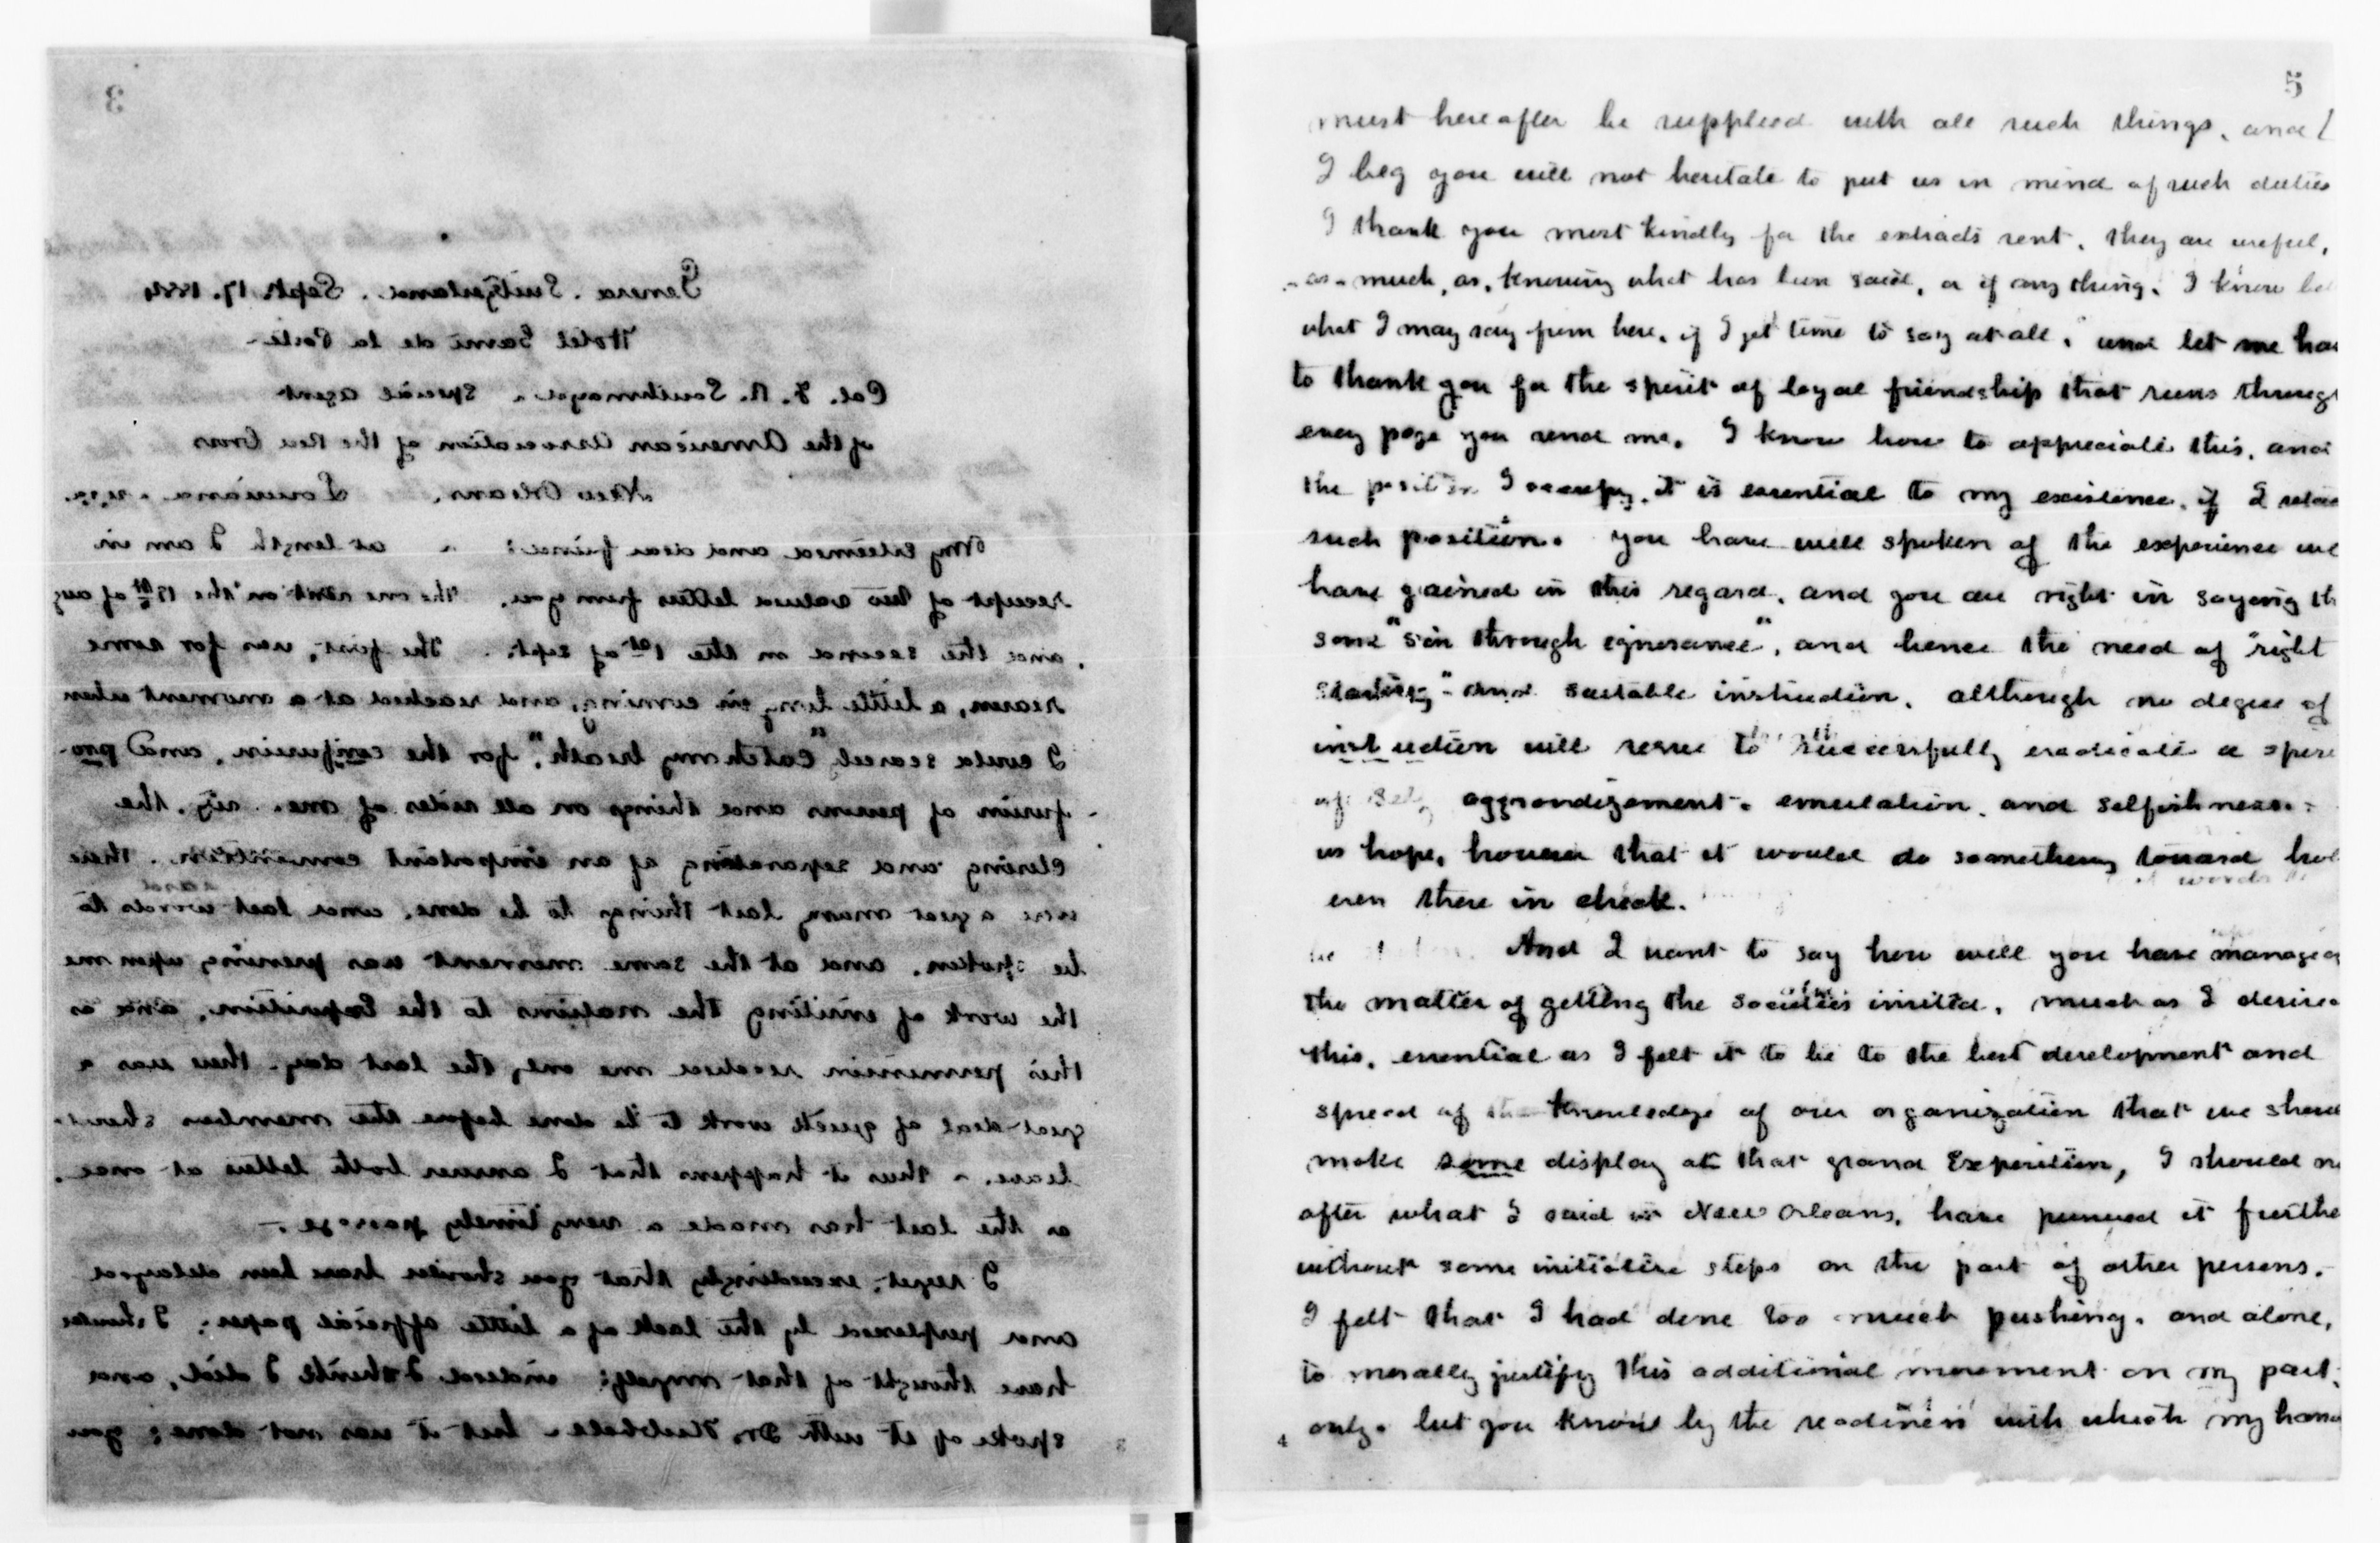 3
Geneva. Switzerland. Sept. 17. 1884
Hotel Garni de la Poste
Col. F. R. Southmayd, Special agent
of the American Association of the Red Cross
New Orleans, Louisiana, U.S.A.
My Esteemed and dear friend: at length I am in
receipt of two valued letters from you, the one sent on the 15th of aug
and the second on the 1st of sept. The first, was for some
reason, a little long in coming, and reached at a moment when
I could scarce "catch my breath", for the confusion, and pro-
fusion of persons and things on all sides of me. viz. the
closing and separating of an important convention. There
were a great many last things to be done, and last words to
be spoken. and at the same moment was pressing upon me
the work of inviting the nations to the Exposition, and as
this permission reached me only the last day, there was a
great deal of quick work to be done before the members should
leave. thus it happens that I answer both letters at once.
as the last has made a very timely passage.
I regret exceedingly that you should have been delayed
and perplexed by the lack of a little official paper. I should
have thought of that myself; indeed I think I did, and,
spoke of it with Dr. Hubbell, but it was not done; you
3
5
must hereafter be supplied with all such things, and
I beg you will not hesitate to put us in mind of such duties
I thank you most kindly for the extracts sent. they are useful,
as much, as, knowing what has been said, or if any thing. I know
what I may say from here, if I get time to say at all. and let me
to thank you for the spirit of loyal friendship that runs through
every page you send me. I know how to appreciate this, and
the position I occupy, it is essential to my existence, if I
such position. you have well spoken of the experience we
have gained in this regard, and you are right in saying
some "sin through ignorance", and hence the need of "right
starting" and suitable instruction. although no degree of
instruction will serve to successfully eradicate a
of self aggrandizement. emulation. and selfishness.
us hope, however that it would do something toward
even there in check.
And I want to say how well you have managed
the matter of getting the societies invited. much as I desired
this, essential as I felt it to be to the best development and
spread of the knowledge of our organization that we should
make some display at that grand Exposition, I should
after what I said in New Orleans, have pursued it
without some initiative steps on the part of other persons.
I felt that I had done too much pushing, and alone,
to morally justify this additional movement on my part.
only. but you know by the readiness with which my
4